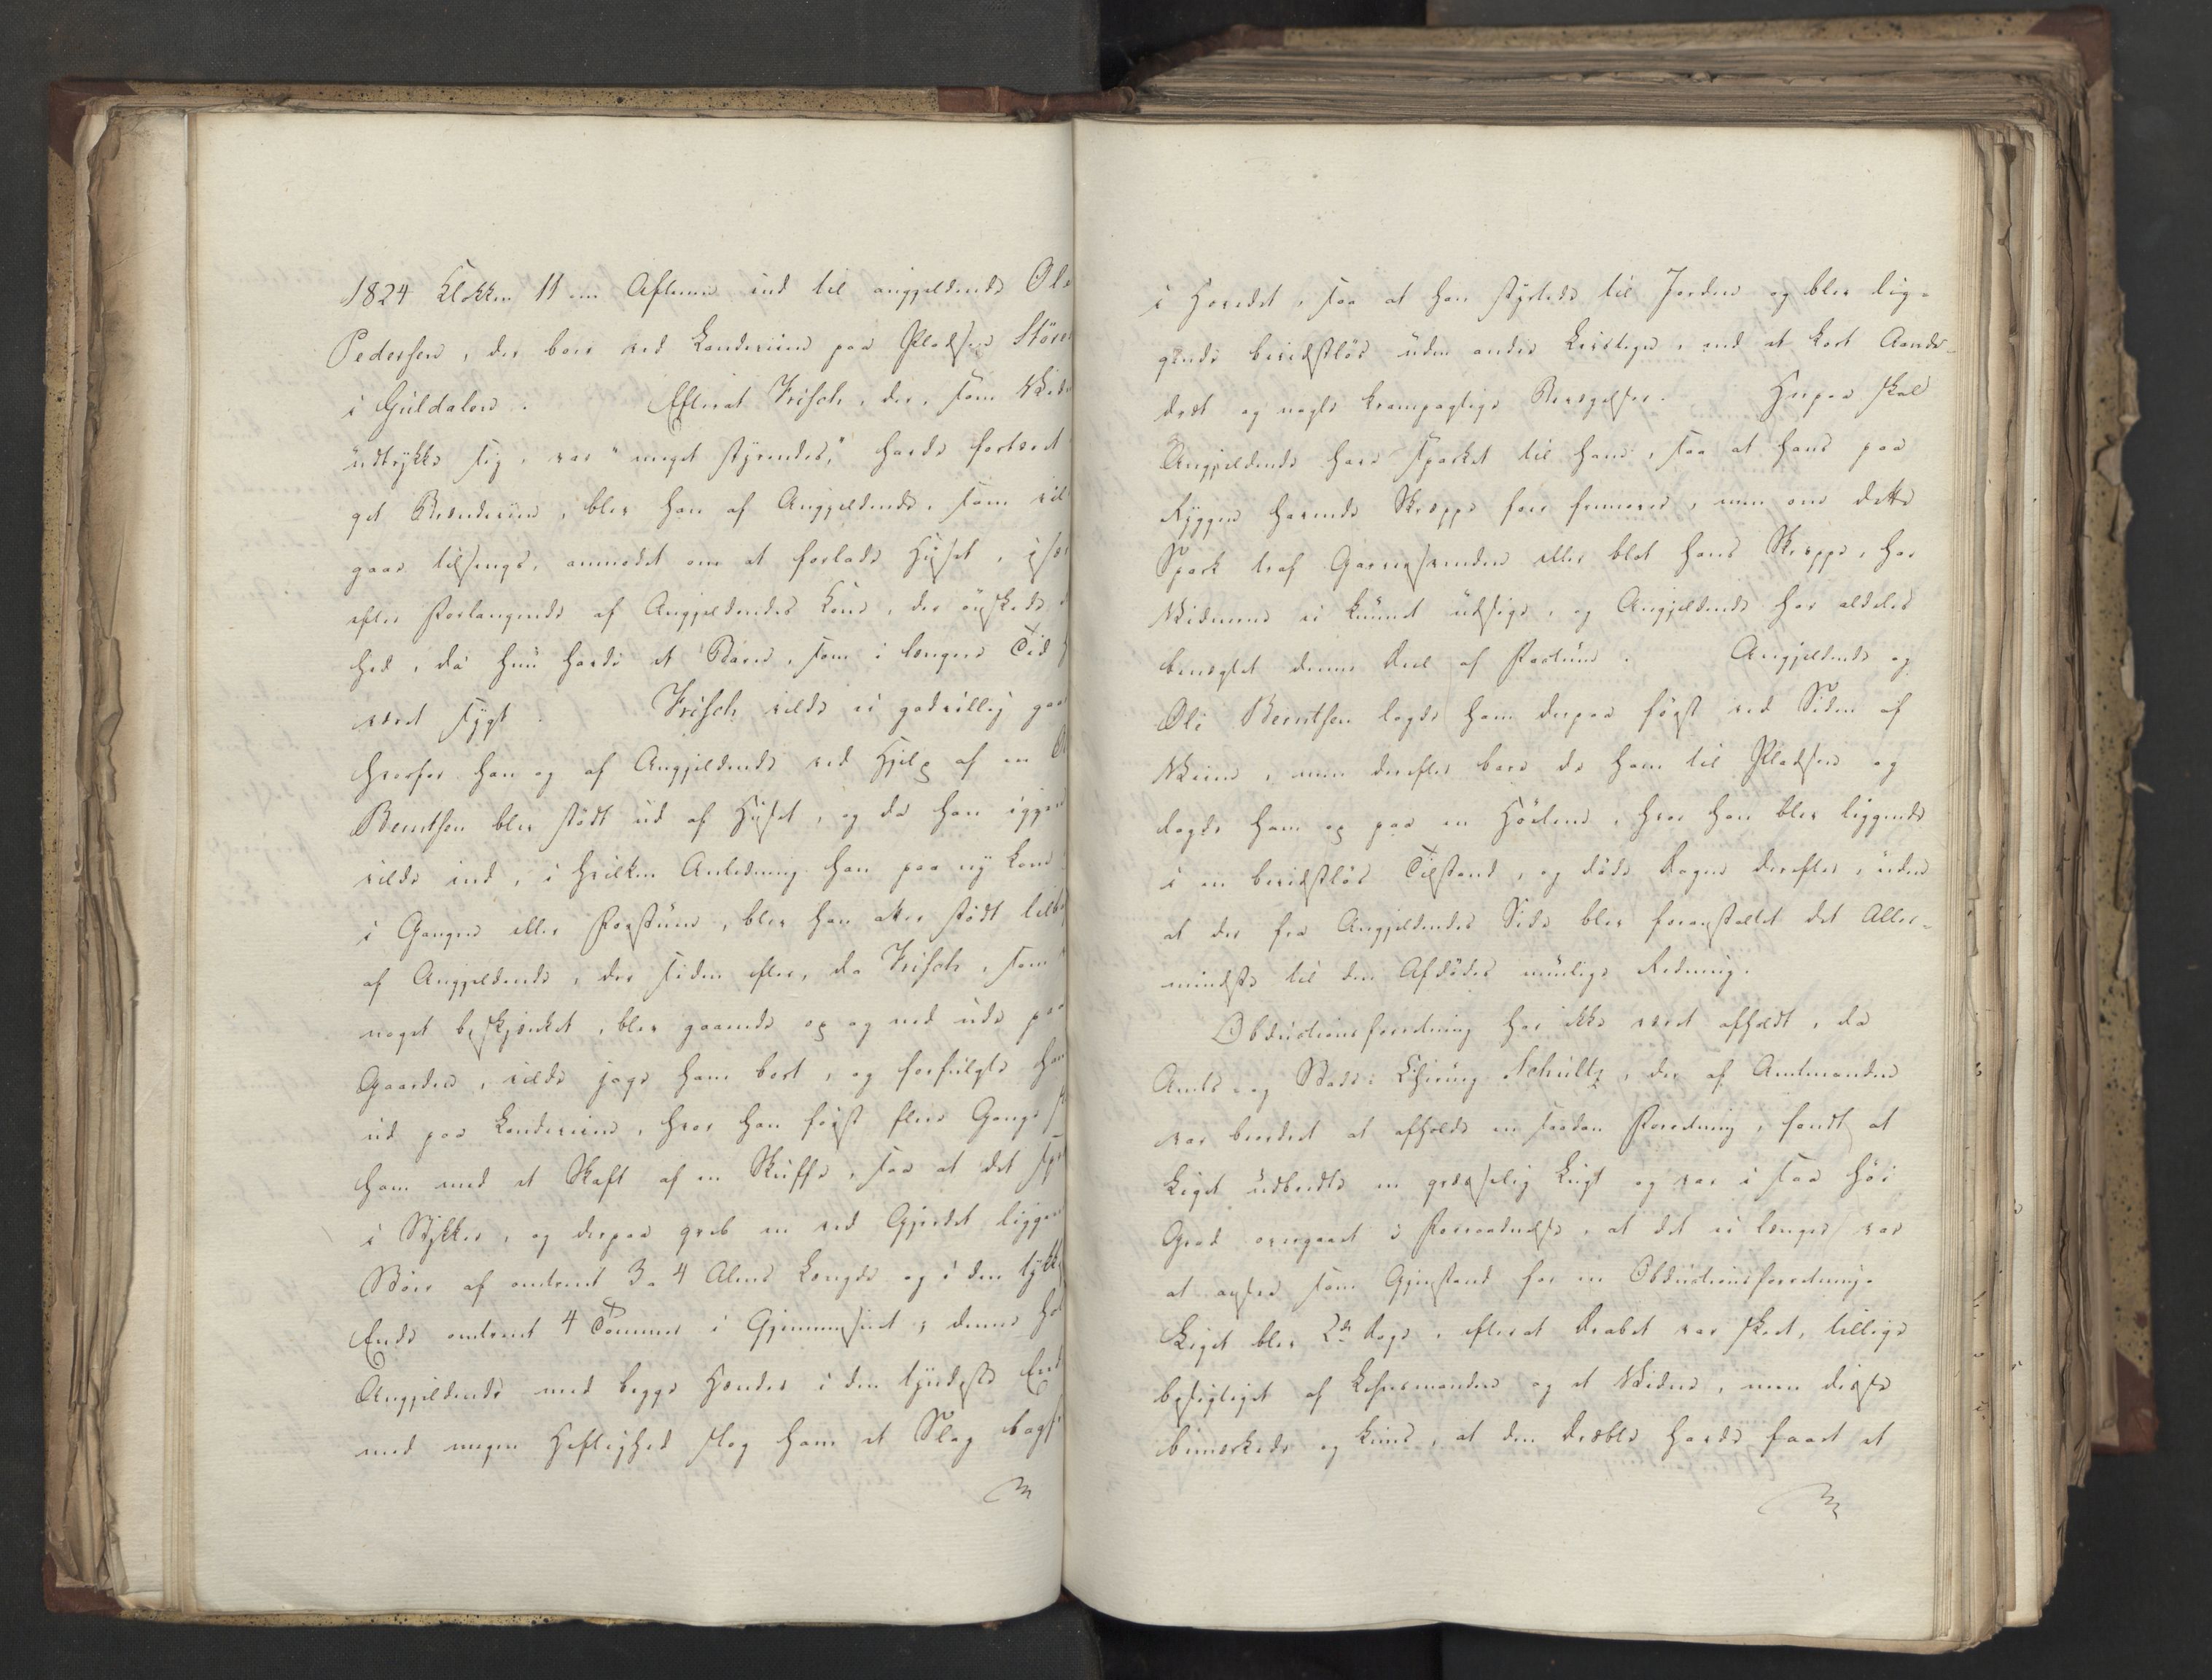 1824 Klokken 11 om Aftenen ind til angjeldende Ole
Pedersen, der boer ved Landeveien paa Pladsen Stören
i Guldalen. Efterat Frisch, der, som Vidn
udtrykke sig, var "meget styrendes," havde fortæret
get Brændeviin, blev han af Angjeldende, som vil
gaae tilsengs, anmodet om at forlade Huset, især
efter Forlangende af Angjeldendes Kone, der önskede
hed, da hun havde et Barn, som i længere Tid h
været sygt. Frisch vilde ei godvillig gaae
hvorfor han og af Angjeldende ved Hjelp af en O
Berntsen blev stödt ud af Huset, og da han igjen
vilde ind, i hvilken Anledning han paa ny kom
i Gangen eller Forstuen, blev han atter stödt tilba
af Angjeldende, der siden efter, da Frisch, som
noget beskjænket, blev gaaende op og ned ude paa
Gaarden, vilde jage ham bort, og forfulgte ham
ud paa Landeveien, hvor han först flere Gange s
ham med et Skaft af en Skuffe, saa at det spr
i Stykker, og derpaa greb en ved Gjerdet liggen
Stör af omtrent 3 a 4 Alens Længde og i den tykk
Ende omtrent 4 Tommer i Gjennemsnit; denne hol
Angjeldende med begge Hænder i den tyndeste End
med megen Heftighed slog ham et Slag bagf
i Hovedet, saa at han styrtede til Jorden og blev lig-
gende bevidstlös uden andre Livstegn, end et kort Aande-
dræt og nogle krampagtige Bevægelser. Herpaa skal
Angjeldende have sparket til ham, saa at hans paa
Ryggen havende Skræppe foer fremover, men om dette
Spark traf Gjerningsmanden eller blot hans Skræppe, har
Vidnerne ei kunnet udsige, og Angjeldende har aldeles
benægtet denne Deel af Factum. Angjeldende og
Ole Berntsen lagde ham derpaa först ved Siden af
Veien, men derefter bare de ham til Pladsen og
lagde ham op paa en Höelem, hvor han blev liggende
i en bevidstlös Tilstand, og döde Dagen derefter, uden
at der fra Angjeldendes Side blev foranstaltet det Aller-
mindste til den Afdödes muelige Redning.
Obductionsforretning har ikke været afholdt, da
Amts- og Stads-Chirurg Schultz, der af Amtmanden
var beordret at afholde en saadan Forretning, fandt at
Liget udbredte en græsselig Lugt og var i saa höi
Grad overgaaet i Forraadnelse, at det ei længer var
at ansee som Gjenstand for en Obductionsforretning.
Liget blev 2de Dage, efterat Drabet var skeet, tillige
besigtiget af Lehnsmanden og et Vidne, men disse
bemærkede og kuns, at den Dræbte havde faaet et